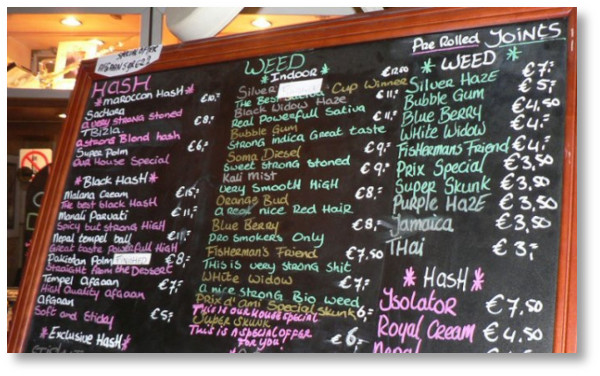 HASH
*Maroccon Hash*
Sachara €10,-
a very strong stoned
Tbizla €8,-
a strong Blond hash
Super Polm €6,-
Our House Special
*Black Hash*
Malana Cream €15,-
The best black Hash
Monali Parvati €11,-
Spicy but strong High
Nepal tempel ball €11,-
Great taste Powerfull High
Pakistan Polm €8,-
Straight from the Dessert
Tempel afgaan €7,-
High Quality afgaan
Afgaan €5,-
Soft and Sticky
*Exclusive Hash*
WEED
*Indoor*
Silver Cup Winner €12,50
The Best
Black Widow Haze €11,-
Real Powerfull Sativa
Bubble Gum €11,-
Strong indica Great taste
Soma Diesel €9,-
Sweet strong stoned
Kali Mist €9,-
Very Smooth High
Orange Bud €8,-
a real nice Red Hair
Blue Berry €8,-
Pro Smokers Only
Fisherman's Friend €7,50
This is very strong shit
White Widow €7,-
a nice strong Bio weed
Prix d'ami Special skunk 6,-
This is our House Special
Super Skunk €6,-
This is a Special offer
for you!
Pre Rolled Joints
*WEED*
Silver Haze €7,-
Bubble Gum €5,-
Blue Berry €4,50
White Widow €4,-
Fisherman's Friend €4,-
Prix Special €3,50
Super Skunk €3,50
Purple Haze €3,50
Jamaica €3,50
Thai €3,-
*Hash*
Ysolator €7,50
Royal Cream €4,50
Nepal